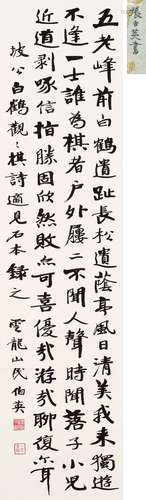 五老峰前白鶴遺趾長松蔭亭風日清美我来獨遊
不逢一士誰為棋者戶外屨二不聞人聲時聞落子小兒
近道剥啄信指勝固欣然敗亦可喜優哉游哉聊復尔耳
坡公白鶴觀〻棋詩適見石本錄之 雲龍山民伯英
張伯英書